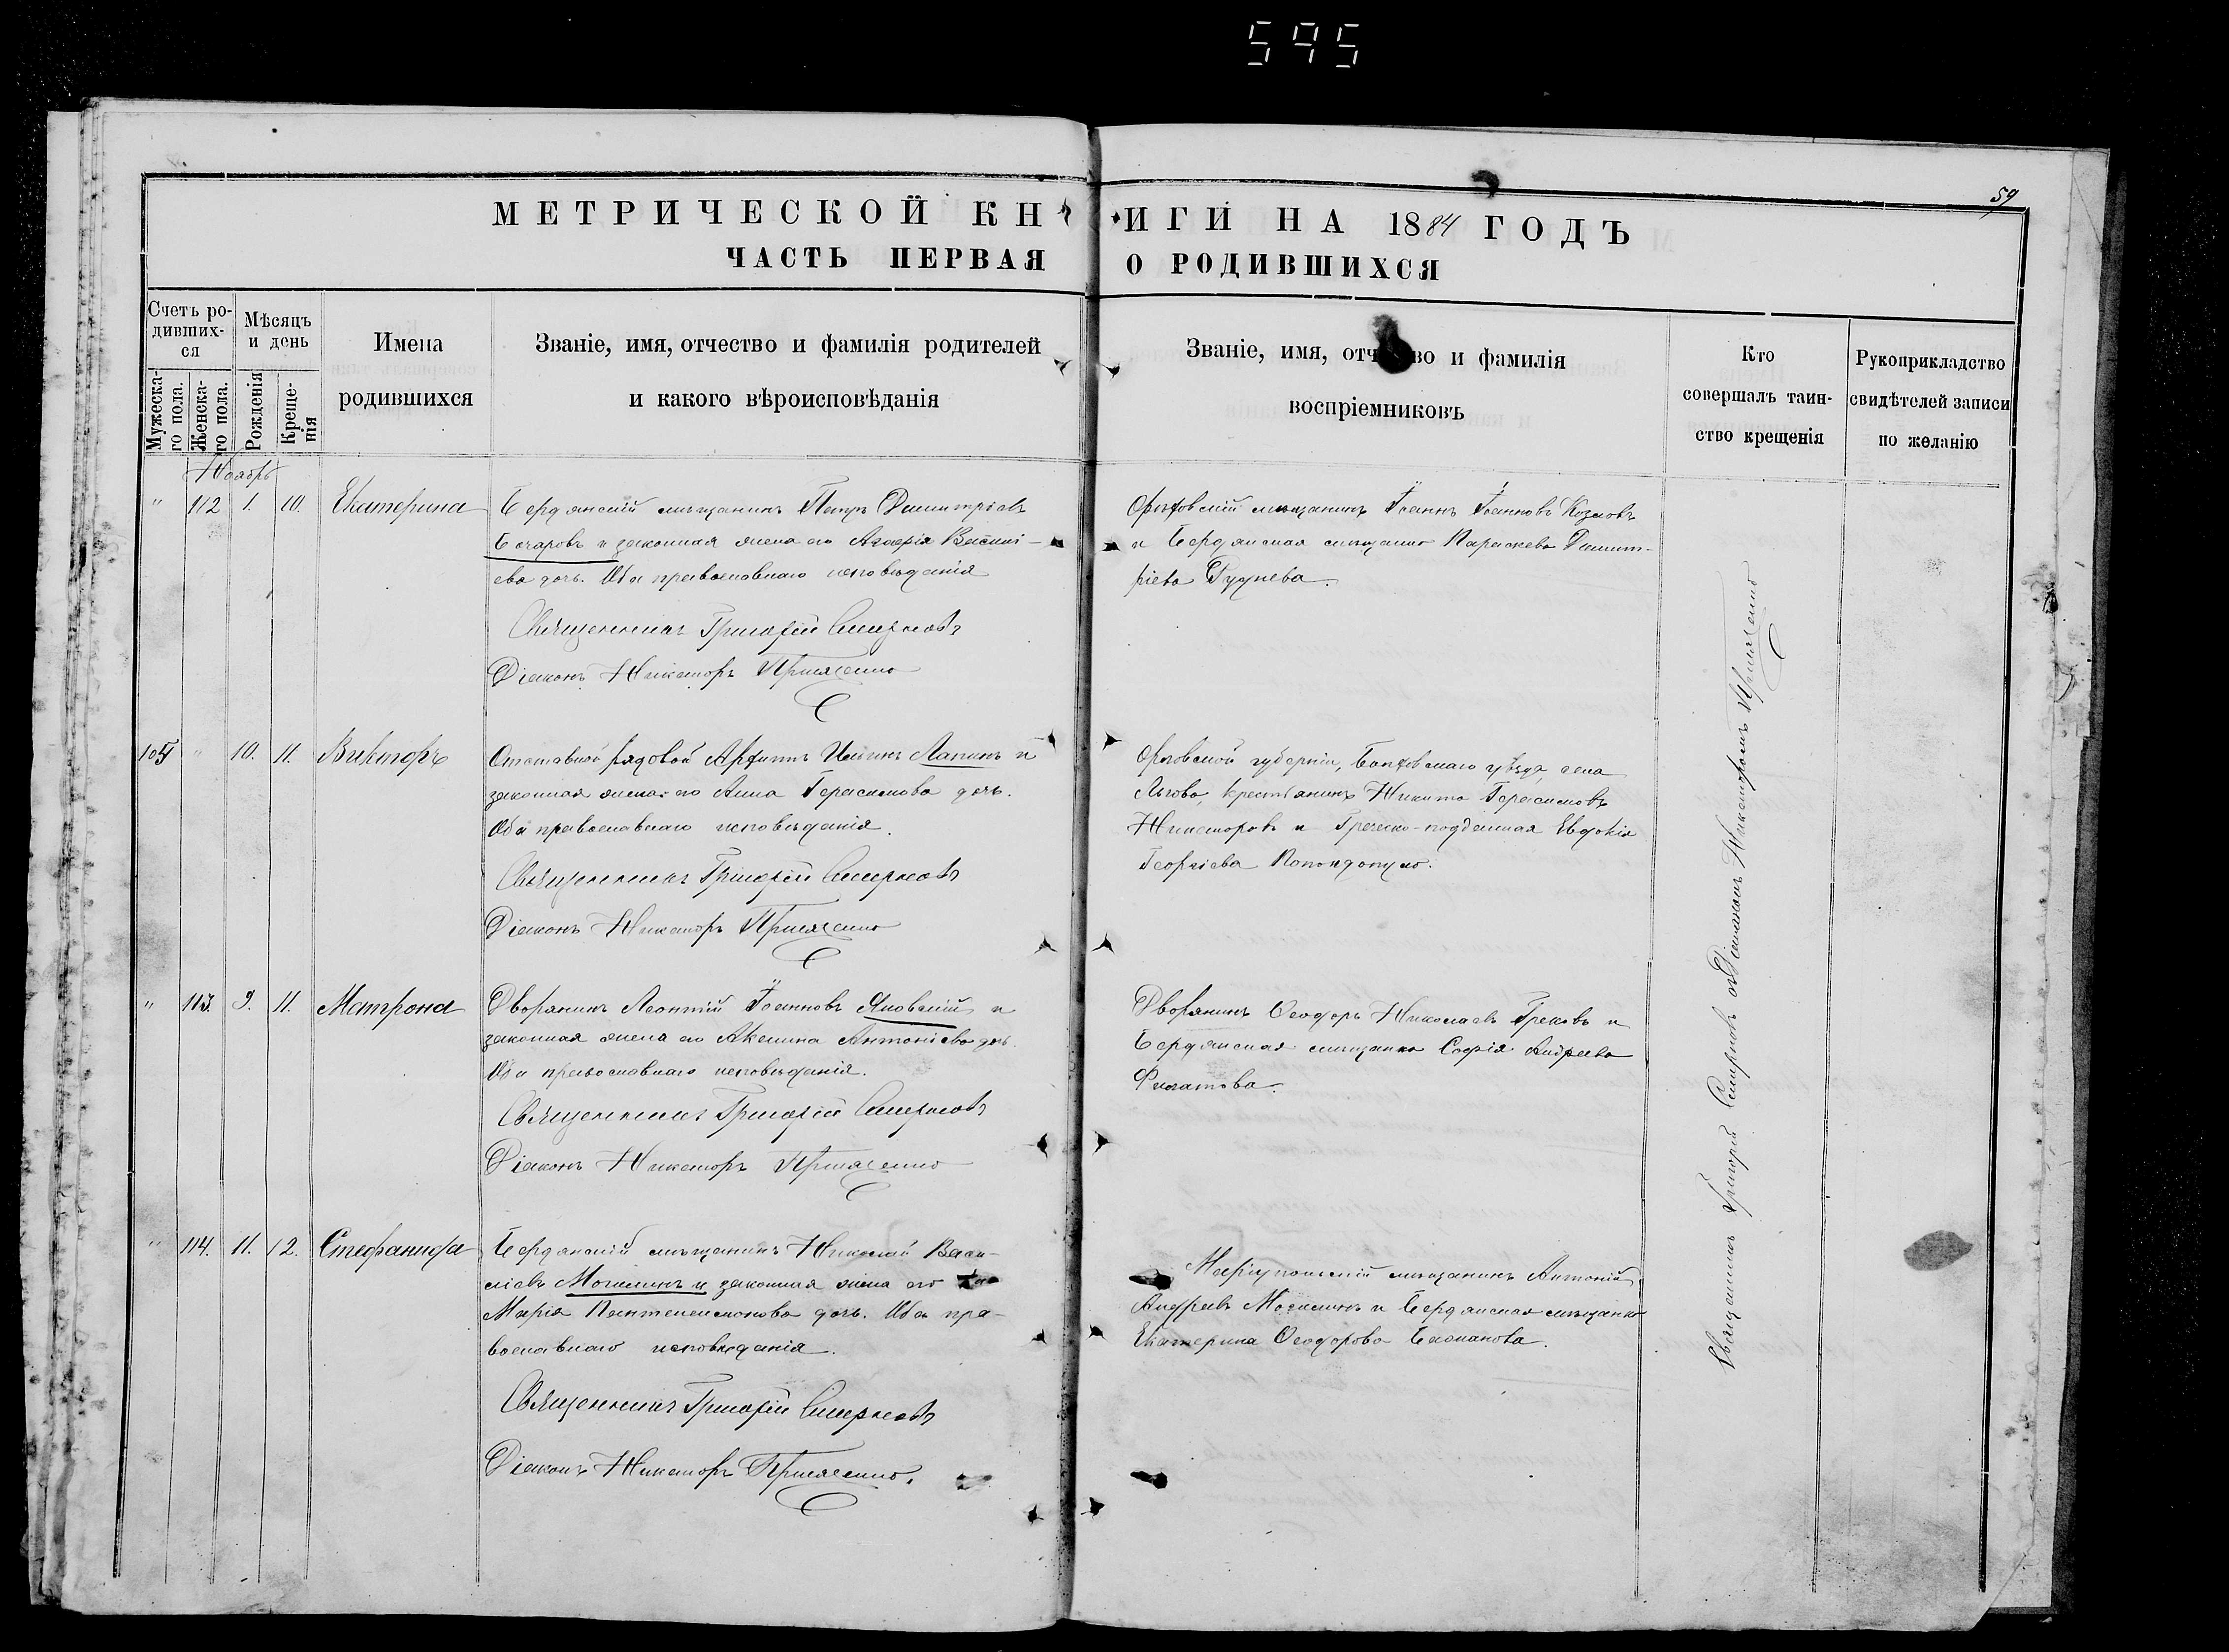 595
59
МЕТРИЧЕСКОЙ КНИГИ НА 1884 ГОДЪ
ЧАСТЬ ПЕРВАЯ О РОДИВШИХСЯ
Счетъ ро-
дивших-
ся
Мужеска-
го пола.
Женска-
го пола.
Мѣсяцъ
и день
Рожденія
Креще-
нія
Имена
родившихся
Званіе, имя, отчество и фамилія родителей
и какого вѣроисповѣданія
Званіе, имя, отч во и фамилія
воспріемниковъ
Кто
совершалъ таин-
ство крещенія
Рукоприкладство
свидѣтелей записи
по желанію
Ноябрь
" 112 1. 10. Екатерина
Бердянскій мѣщанинъ Петръ Димитріевъ
Бочаровъ и законная жена его Агафія Василі-
ева дочь. Оба православнаго исповѣданія
Священникъ Григорій Смирновъ
Діаконъ Никаноръ
Орѣховскій мѣщанинъ Іоаннъ Іоанновъ Козловъ
и Бердянская мѣщанка Параскева Димит-
ріева Руднева.
109 " 10. 11. Викторъ
Отставной рядовой Архипъ Ильинъ Лапинъ и
законная жена его Анна Герасимова дочь.
Оба православнаго исповѣданія.
Священникъ Григорій Смирновъ
Діаконъ Никаноръ
Орловской губерніи, Болховскаго уѣзда, села
Льгова, крестьянинъ Никита Герасимовъ
Никаноровъ и Греческо-подданная Евдокія
Георгіева Попондопуло.
" 113. 9. 11. Матрона
Дворянинъ Леонтій Іоанновъ Яновскій и
законная жена его Акилина Антоніева дочь.
Оба православнаго исповѣданія.
Священникъ Григорій Смирновъ
Діаконъ Никаноръ
Дворянинъ Ѳеодоръ Николаевъ Грековъ и
Бердянская мѣщанка Софія Андреева
Филатова.
" 114. 11. 12. Стефанида
Бердянскій мѣщанинъ Николай Васи-
ліевъ Могилинъ и законная жена его
Марія Пантелеимонова дочь. Оба пра-
вославнаго исповѣданія.
Священникъ Григорій Смирновъ
Діаконъ Никаноръ
Маріупольскій мѣщанинъ Антоній
Андреевъ Могилинъ и Бердянская мѣщанка
Екатерина Ѳеодорова
Священникъ Григорій Смирновъ съ Діакономъ Никаноромъ